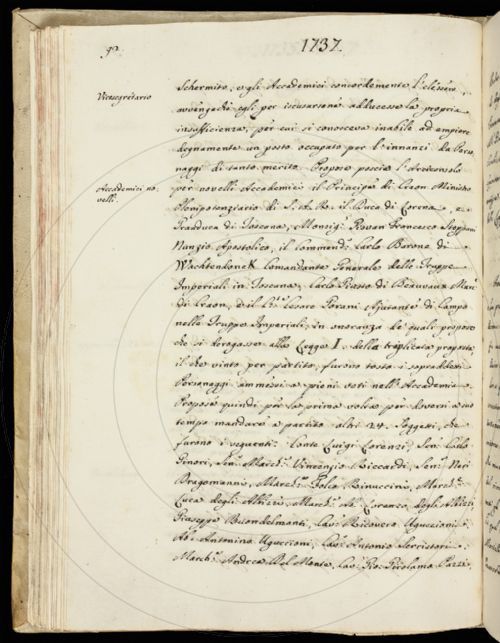 90.
1737.
Vicesegretario
Schermito; e gli Accademici concordemente l'elessero,
avvengachè egli per iscusarsene adducesse la propria
insufficienza, per cui si conosceva inabile ad empiere
degnamente un posto occupato per l'innanzi da Perso-
naggi di tanto merito. Propose poscia l'Arciconsolo
Accademici no-
velli.
per novelli Accademici il Principe di Craon Ministro
Plenipotenziario di S. A. R. il Duca di Lorena, e
Granduca di Toscana, Monsig. Giovan Francesco Stoppani
Nunzio Apostolico, il Commend. Carlo Barone di
Wachtendonck Comandante Generale delle Truppe
Imperiali in Toscana, Carlo Giusto di Beauvau Mar.
di Craon, e il Cesare Porani Ajutante di Campo
nelle Truppe Imperiali, in onoranza de' quali propose
che si derogasse alla Legge I. della triplicata proposta,
il che vinto per partito, furono tosto i sopraddetti
Personaggi ammessi a pieni voti nell'Accademia.
Propose quindi per la prima volta per doversi a suo
tempo mandare a partito altri 24. Soggetti, che
furono i seguenti: Conte Luigi Lorenzi, Sen. Carlo
Ginori, Sen. March. Vincenzio Riccardi, Sen. Neri
March. Folco Rinuccini, March.
Luca degli Albizi, March. Ab. Lorenzo degli Albizi
Giuseppe Buondelmonti, Cav. Ricovero Uguccioni,
Ab. Antonino Uguccioni, Cav. Antonio Serristori,
March. Andrea Del Monte, Cav. Gio. Girolamo Pazzi,